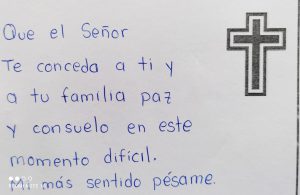 Que el Señor
Te conceda a ti y
a tu familia paz
y consuelo en este
momento difícil.
más sentido pésame.